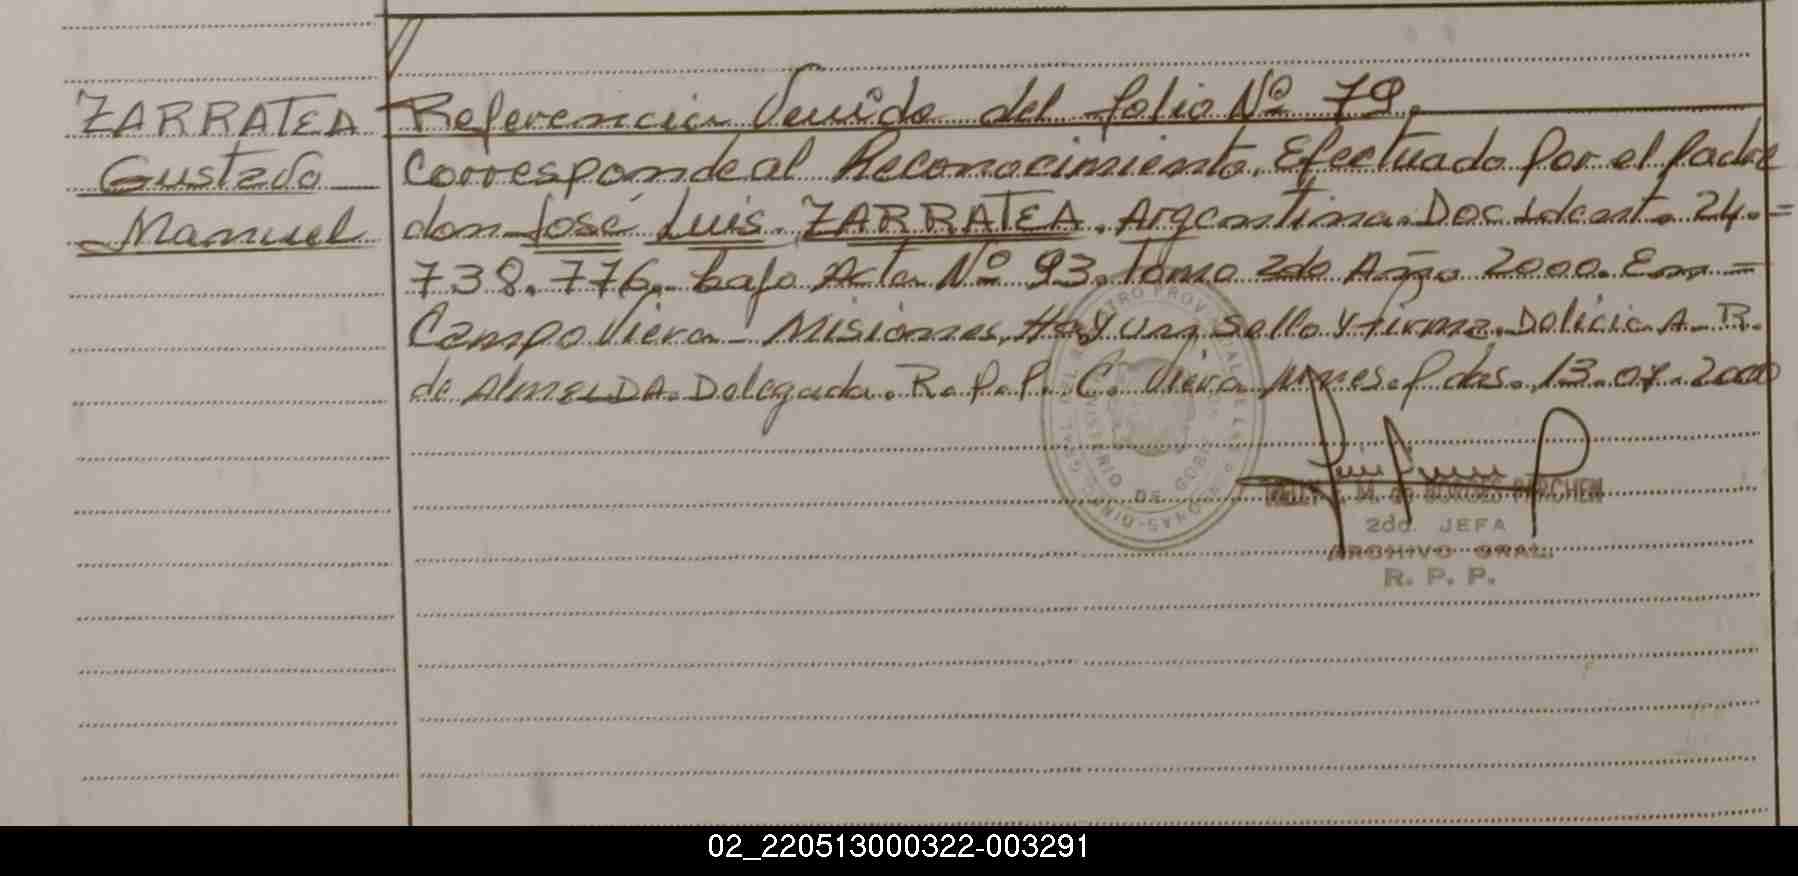 ZARRATEA
Gustavo
Manuel
Referencia Venido del folio Nº 79.
Corresponde al Reconocimiento. Efectuado Por el Padre
don José Luis. ZARRATEA. Argentina. Doc. Ident. 24.=
738.776. bajo Acta Nº 93. Tomo 2do Año 2000. En =
Campo Viera - Misiones. Hay un sello y firma. Dolicia A. R.
de AlmeiDA. Delegada. R.P.P. C. Viera Mnes. Pdas. 13.07.2000
2da. JEFA
ARCHIVO GRAL.
R. P. P.
02_220513000322-003291